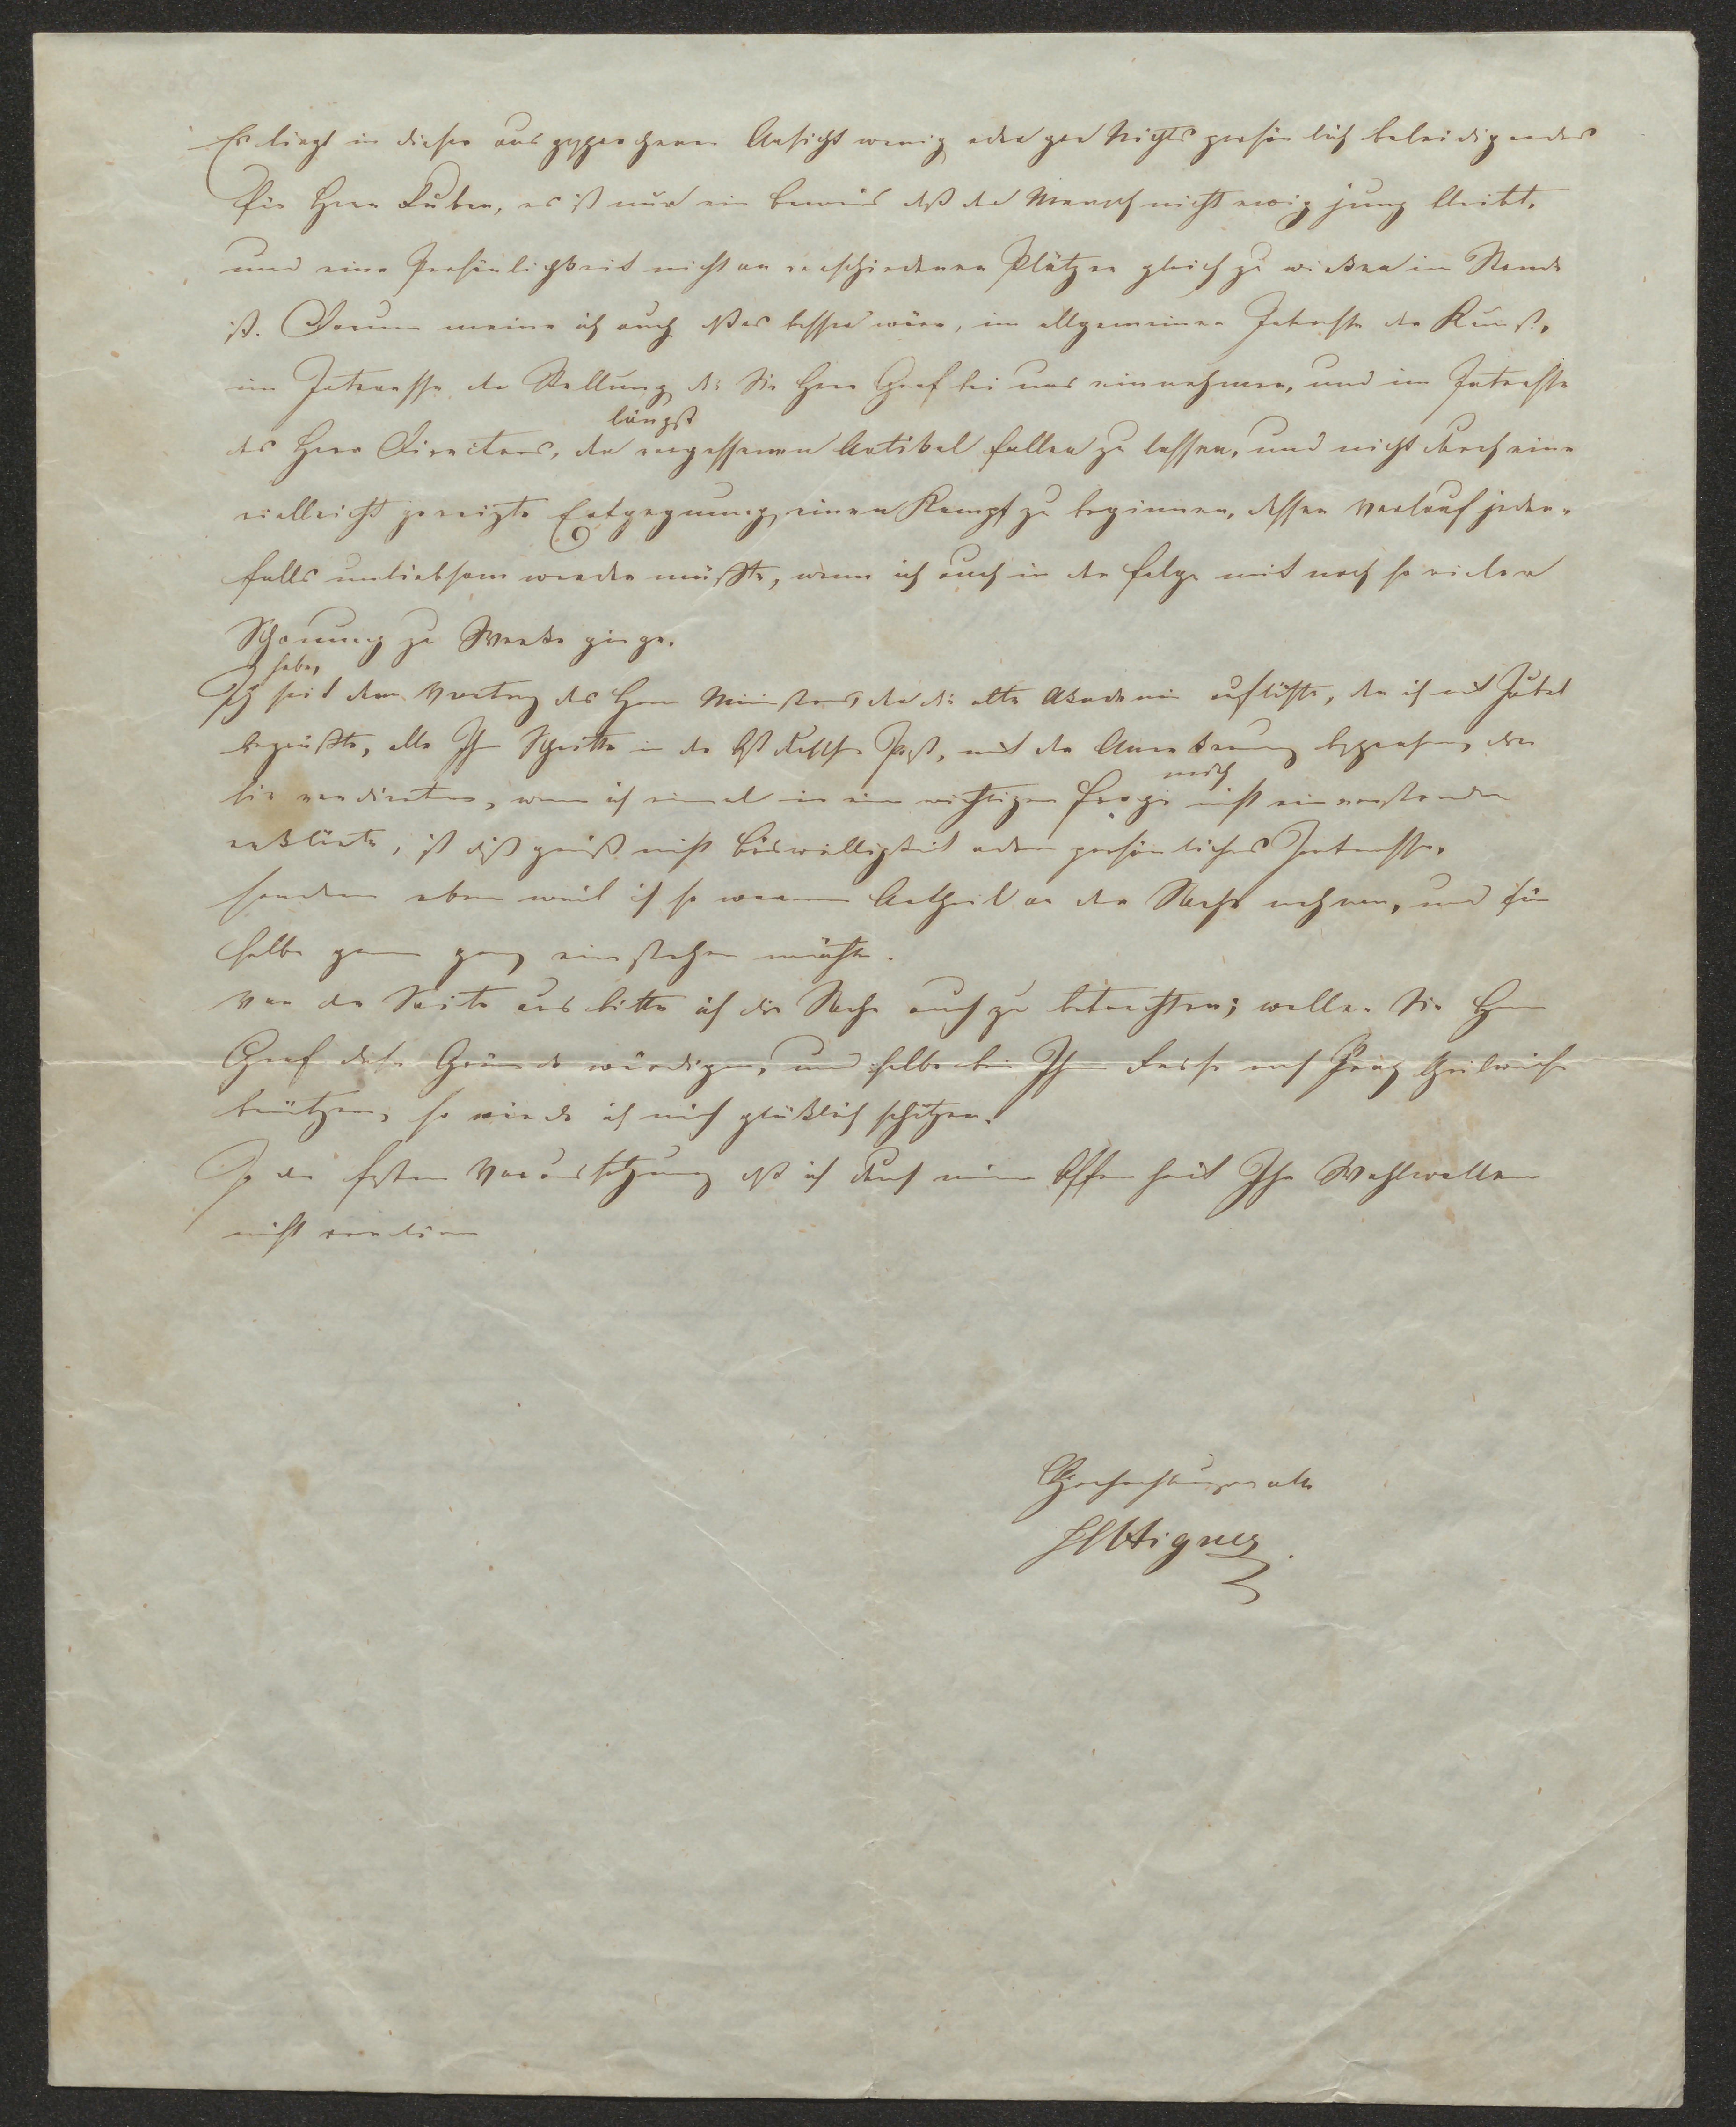 Es liegt in dieser ausgesprochenen Ansicht wenig oder gar Nichts persönlich beleidigendes
für Herrn Ruben, es ist nur ein beweis daß der Mensch nicht ewig jung bleibt,
und eine Persönlichkeit nicht an verschiedenen Plätzen gleich zu wirken im Stande
ist. Darum meine ich auch daß es besser wäre, im allgemeinen Interesse der Kunst,
im Interesse der Stellung die Sie Herr Graf bei uns einnehmen, und im Interesse
längst
des Herrn Directors, den vergessenen Artikel fallen zu lassen, und nicht durch eine
vielleicht gereizte Entgegnung, einen Kampf zu beginnen, dessen Verlauf jeden-
falls unliebsam werden müßte, wenn ich auch in der folge mit noch so vieler
Schonung zu Werke ginge.
habe,
Ich seit dem Vortrag des Herrn Ministers, der die alte Akademie auflöste, den ich mit Jubel
begrüßte, alle Ihre Schritte in der Ost deutschen Post, mit der Anerkennung besprochen, die
mich
sie verdienten, wenn ich einmal in einer wichtigen frage nicht einverstanden
erklärte, ist dieß gewiß nicht böswilligkeit oder persönliches Interesse,
sondern eben weil ich so warmen Antheil an der Sache nehme, und für
selbe gern ganz einstehen möchte.
Von der Seite aus bitte ich die Sache auch zu betrachten; wollen Sie Herr
Graf diese Gründe würdigen, und selbe bei Ihrer nach Prag
benützen, so würde ich mich glüklich schätzen.
In der festen Voraussetzung daß ich durch meine Offenheit Ihr Wohlwollen
nicht verliere
Hochachtungsvoll